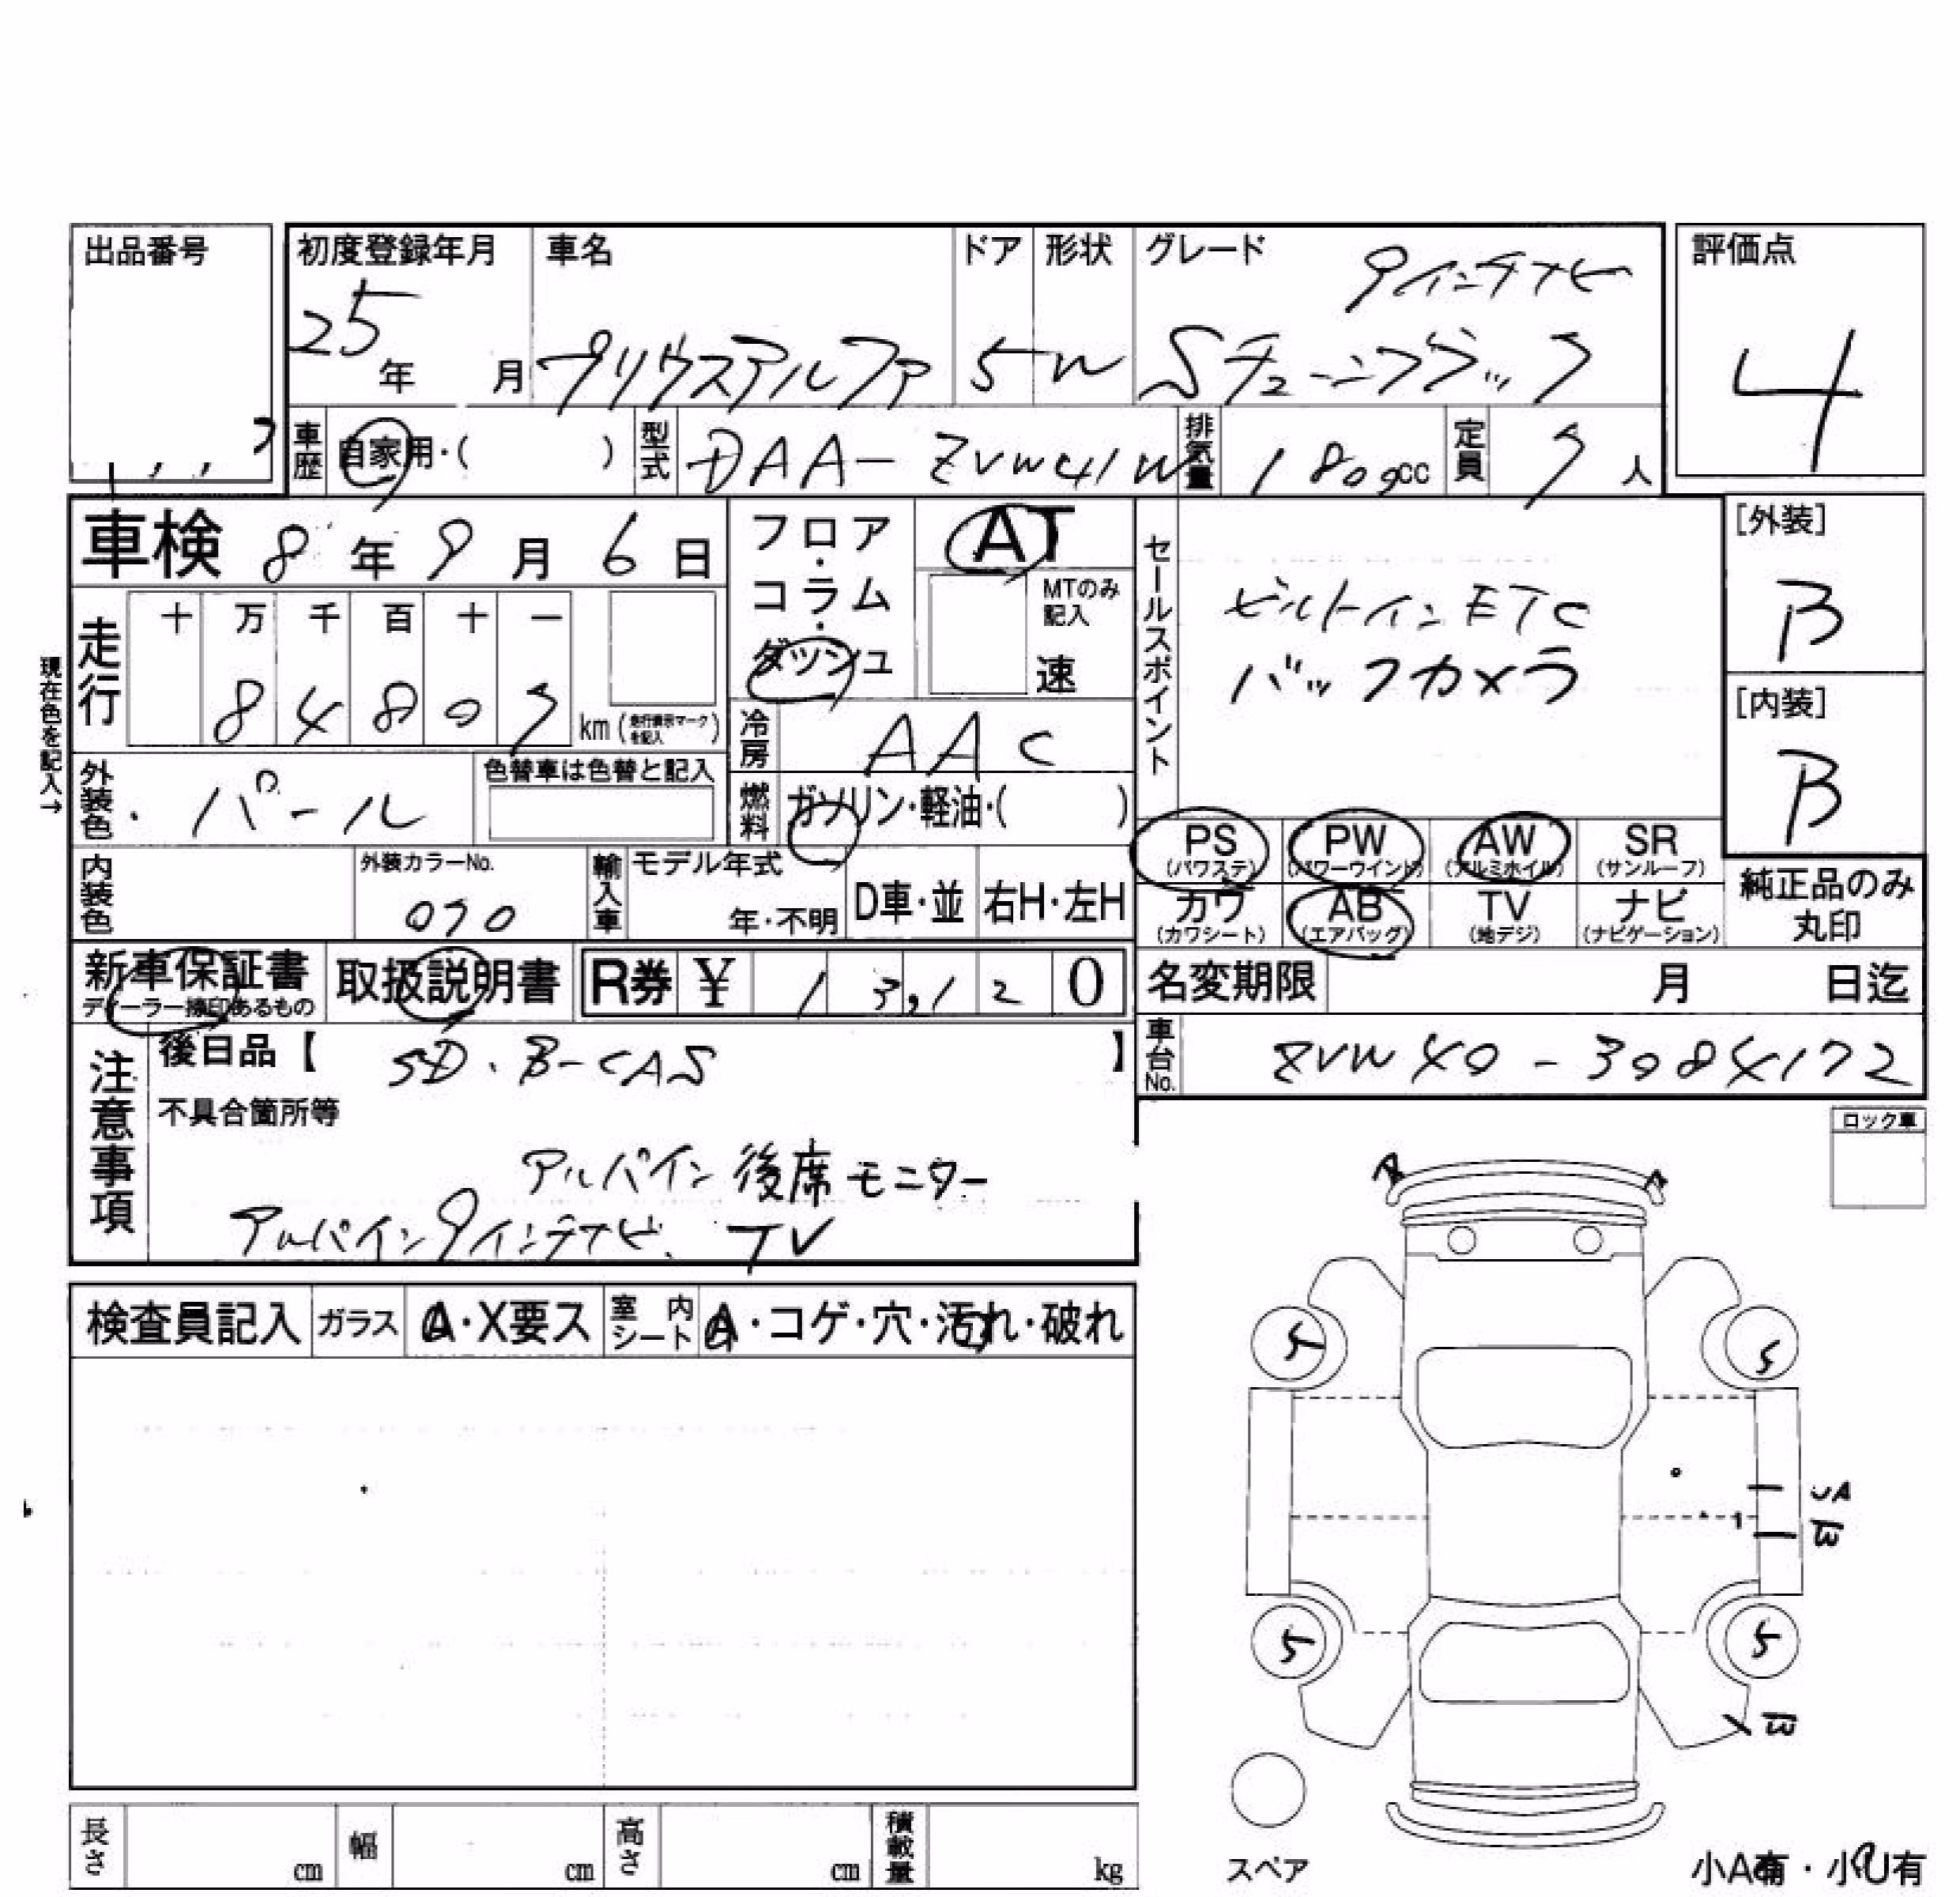 出品番号
初度登録年月 車名 ドア 形状 グレード 9インチナビ 評価点
25年 月 プリウスアルファ 5 W Sチューンブラック 4
車歴 自家用・( ) 型式 DAA-ZVW41W 排気量 1800cc 定員 7人
車検 8年9月6日
フロア・コラム・ダッシュ
AT
MTのみ記入
速
セールスポイント
ビルトインETC
バックカメラ
[外装]
B
[内装]
B
走行
十 万 千 百 十 一
8 4 8 0 7 km (走行表示マークを記入)
現在色を記入→
冷房 AAC
外装色 パール
色替車は色替と記入
燃料 ガソリン・軽油・( )
PS (パワステ) PW (パワーウインド) AW (アルミホイル) SR (サンルーフ)
カワ (カワシート) AB (エアバッグ) TV (地デジ) ナビ (ナビゲーション)
純正品のみ
丸印
内装色
外装カラーNo.
070
輸入車 モデル年式
年・不明 D車・並 右H・左H
新車保証書
ディーラー捺印あるもの
取扱説明書
R券 ¥ 13,120
名変期限 月 日迄
車台No. ZVW40-3084172
注意事項
後日品【 SD、B-CAS 】
不具合箇所等
アルパイン後席モニター
アルパイン9インチナビ、TV
ロック車
検査員記入 ガラス A・X要ス 室内シート A・コゲ・穴・汚れ・破れ
A
5 5
UA
W
5 5
W
スペア
長さ cm 幅 cm 高さ cm 積載量 kg
小A有・小U有